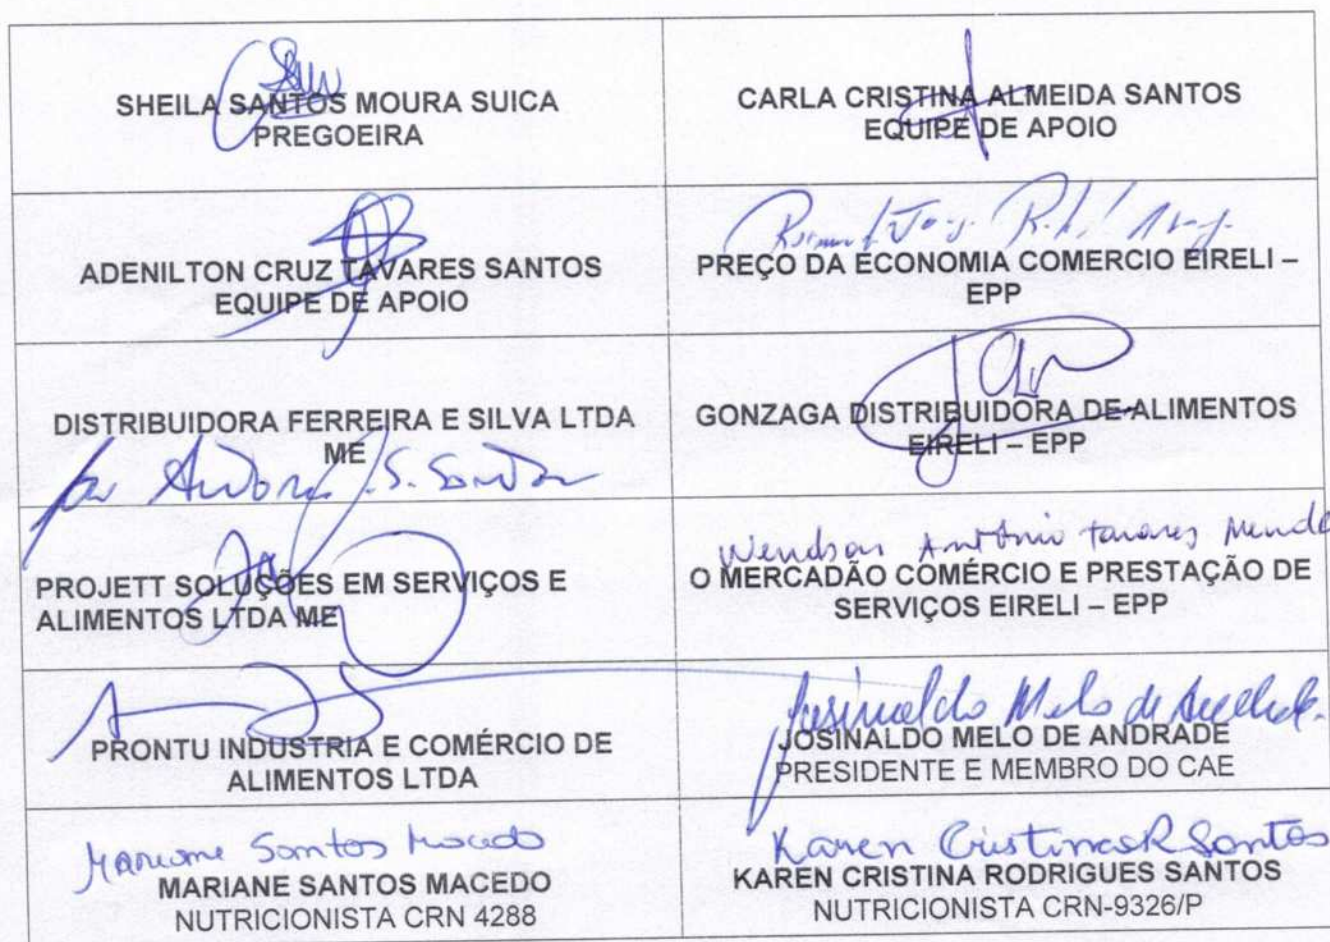 SHEILA SANTOS MOURA SUICA
PREGOEIRA
CARLA CRISTINA ALMEIDA SANTOS
EQUIPE DE APOIO
ADENILTON CRUZ TAVARES SANTOS
EQUIPE DE APOIO
PREÇO DA ECONOMIA COMERCIO EIRELI –
EPP
DISTRIBUIDORA FERREIRA E SILVA LTDA
ME
S. Santos
GONZAGA DISTRIBUIDORA DE ALIMENTOS
EIRELI – EPP
PROJETT SOLUÇÕES EM SERVIÇOS E
ALIMENTOS LTDA ME
Wendson Antônio tavares Mende
O MERCADÃO COMÉRCIO E PRESTAÇÃO DE
SERVIÇOS EIRELI – EPP
PRONTU INDUSTRIA E COMÉRCIO DE
ALIMENTOS LTDA
Josinaldo Melo de Andrade.
JOSINALDO MELO DE ANDRADE
PRESIDENTE E MEMBRO DO CAE
Mariane Santos Macedo
MARIANE SANTOS MACEDO
NUTRICIONISTA CRN 4288
Karen Cristina R Santos
KAREN CRISTINA RODRIGUES SANTOS
NUTRICIONISTA CRN-9326/P